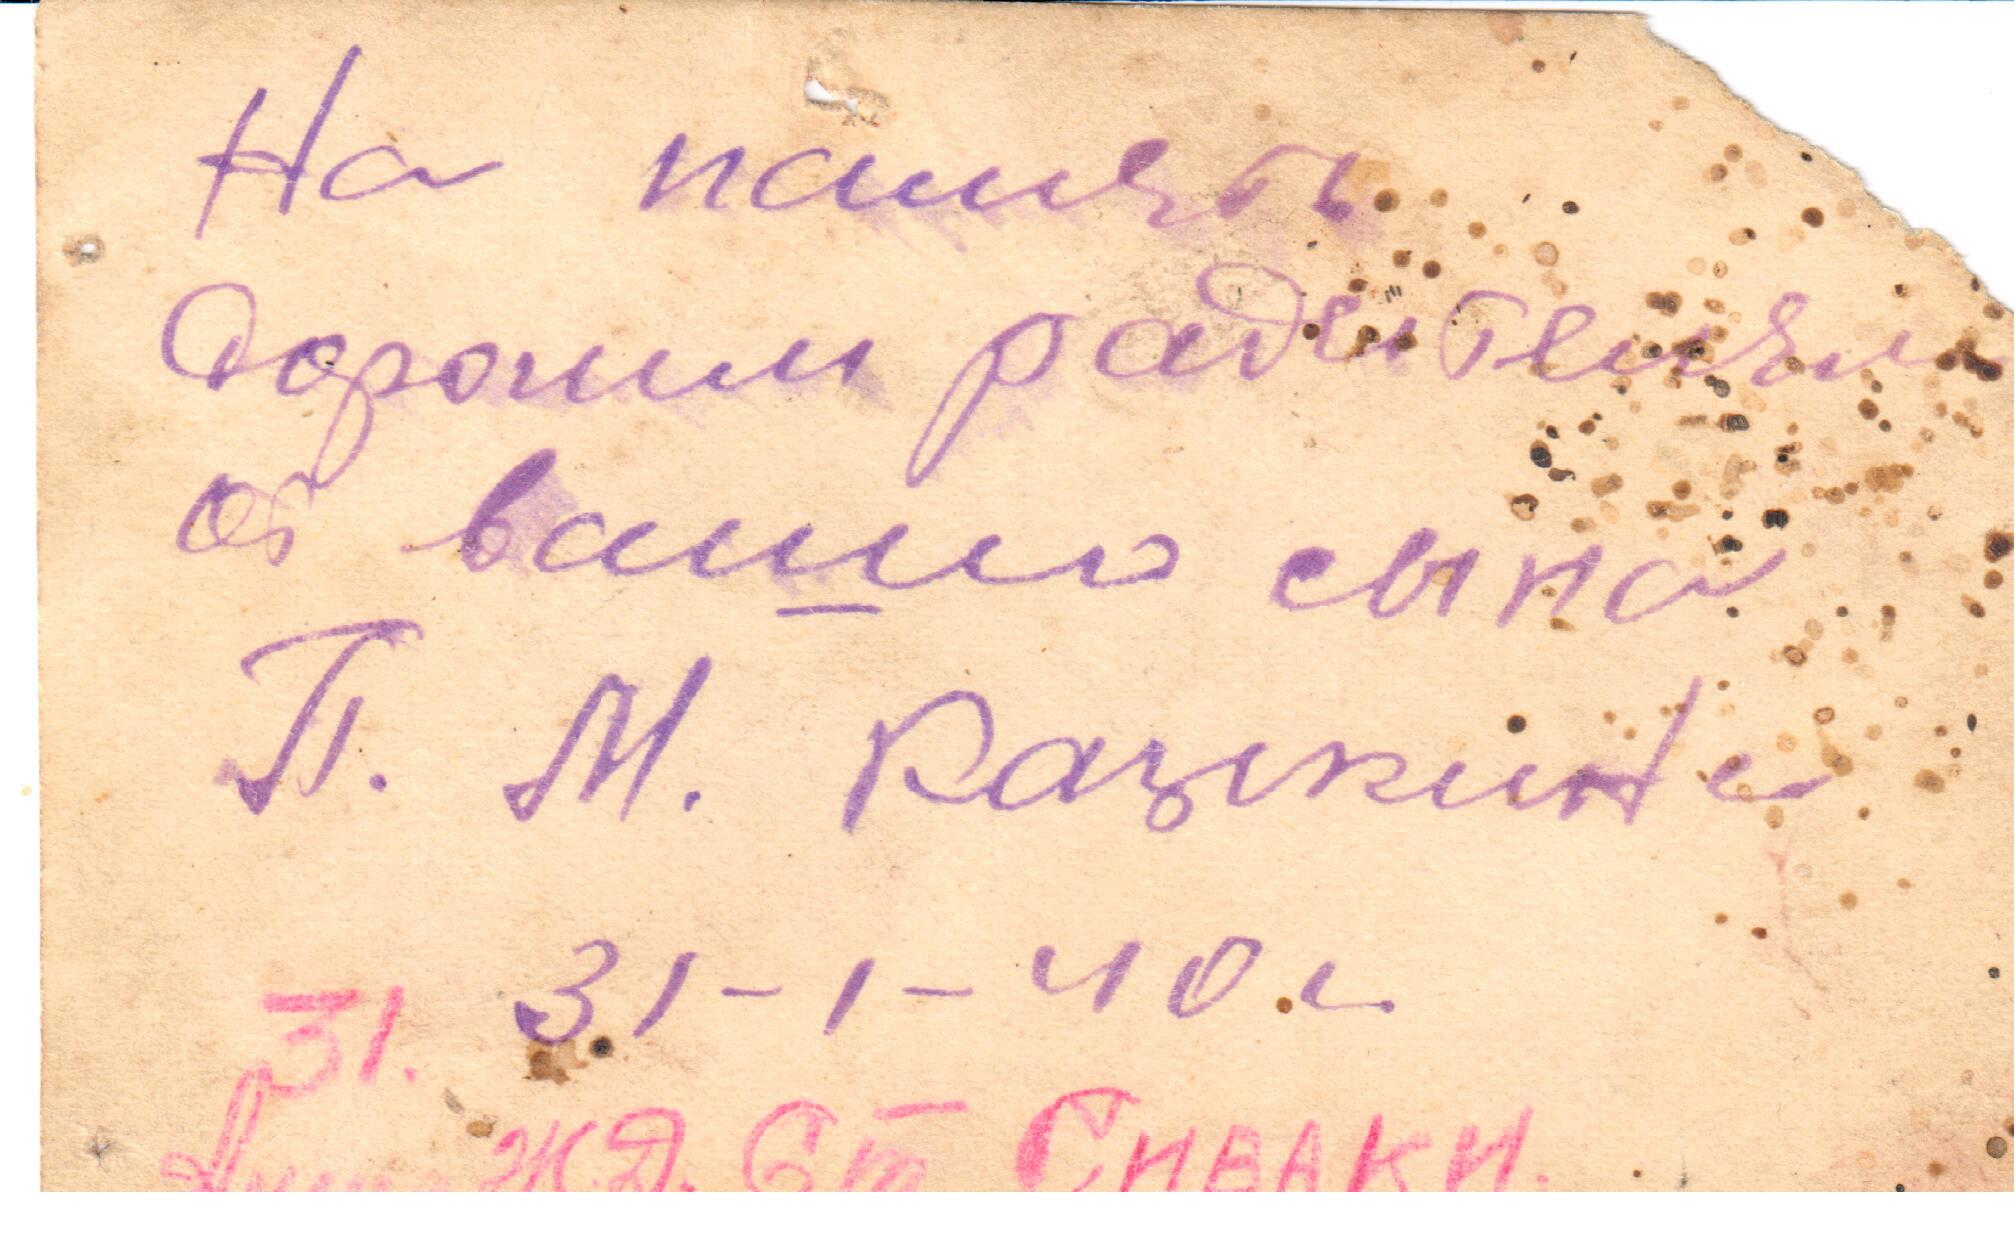 На память
Дорогим радителям
от вашего сына
П. М.
31-1-40 г.
31.
Ж.Д. Ст СИВАКИ.